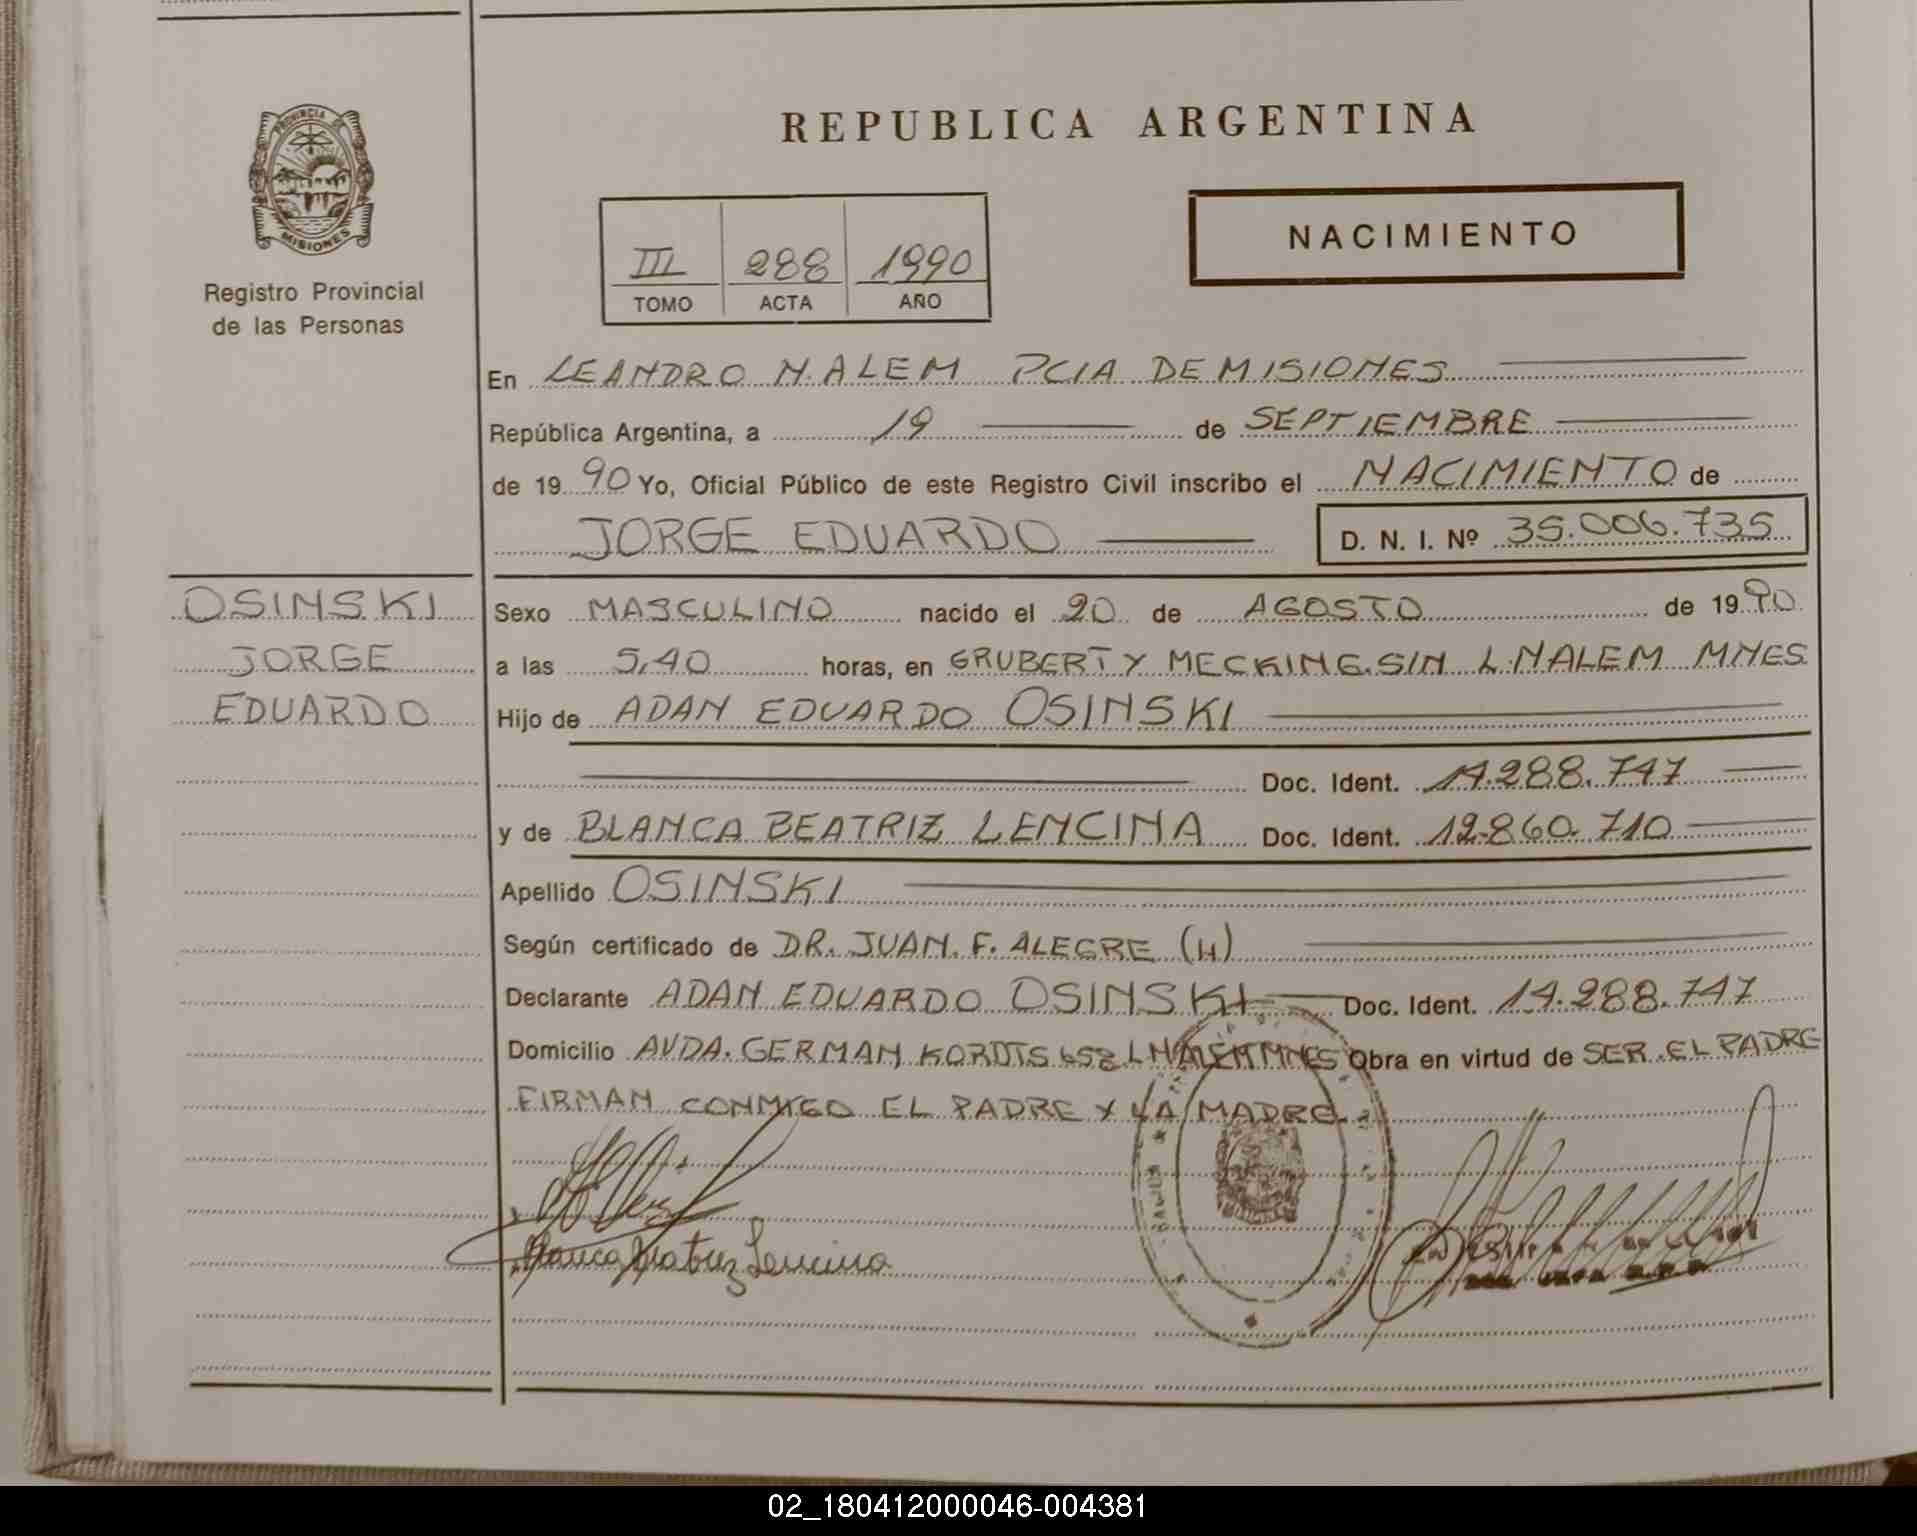 REPUBLICA ARGENTINA
PROVINCIA DE
MISIONES
Registro Provincial
de las Personas
III 288 1990
TOMO ACTA AÑO
NACIMIENTO
En LEANDRO N. ALEM PCIA DE MISIONES
República Argentina, a 19 de SEPTIEMBRE
de 1990 Yo, Oficial Público de este Registro Civil inscribo el NACIMIENTO de
JORGE EDUARDO D. N. I. Nº 35.006.735
OSINSKI
JORGE
EDUARDO
Sexo MASCULINO nacido el 20 de AGOSTO de 1990
a las 5,40 horas, en GRUBERT Y MECKING. SIN L. N ALEM MNES
Hijo de ADAN EDUARDO OSINSKI
Doc. Ident. 14.288.747
y de BLANCA BEATRIZ LENCINA Doc. Ident. 12.860.710
Apellido OSINSKI
Según certificado de DR. JUAN. F. ALEGRE (H)
Declarante ADAN EDUARDO OSINSKI Doc. Ident. 14.288.747
Domicilio AVDA. GERMAN KORDTS 658 L N ALEM MNES Obra en virtud de SER EL PADRE
FIRMAN CONMIGO EL PADRE Y LA MADRE.
Blanca Beatriz Lencina
02_180412000046-004381